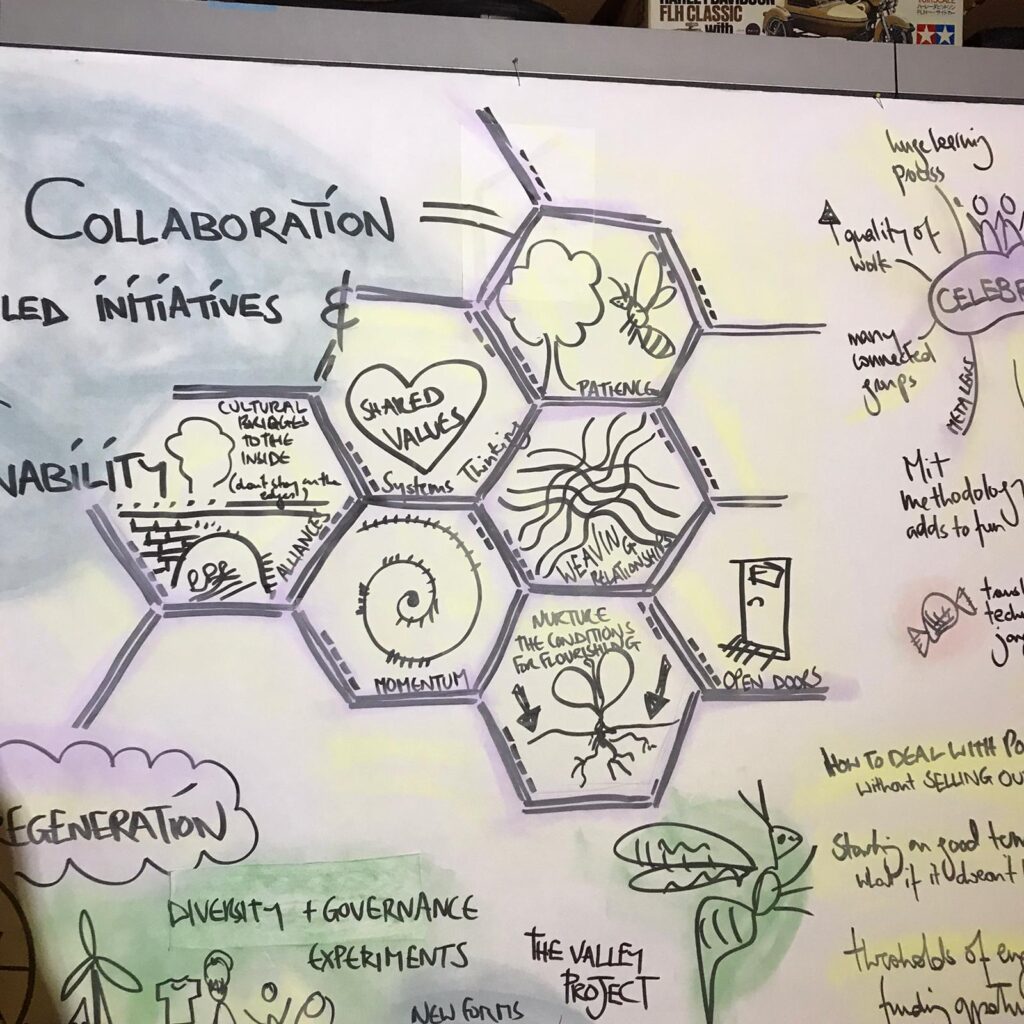 HARLEY DAVIDSON
FLH CLASSIC
with
COLLABORATION
LED INITIATIVES &
NABILITY
PATIENCE
SHARED
VALUES
Systems Thinking
CULTURAL
TO THE
INSIDE
(don't stay on the
edges!)
ALLIANCES
WEAVING
RELATIONSHIPS
MOMENTUM
NURTURE
THE CONDITIONS
FOR FLOURISHING
OPEN DOORS
huge learning
process
quality of
work
CELEBR
many
connected
groups
Mit
methodology
adds to fun
EGENERATION
DIVERSITY + GOVERNANCE
EXPERIMENTS
NEW FORMS
THE VALLEY
PROJECT
HOW TO DEAL WITH PO
without SELLING OU
Starting on good
what if it doesn't
thresholds of
funding